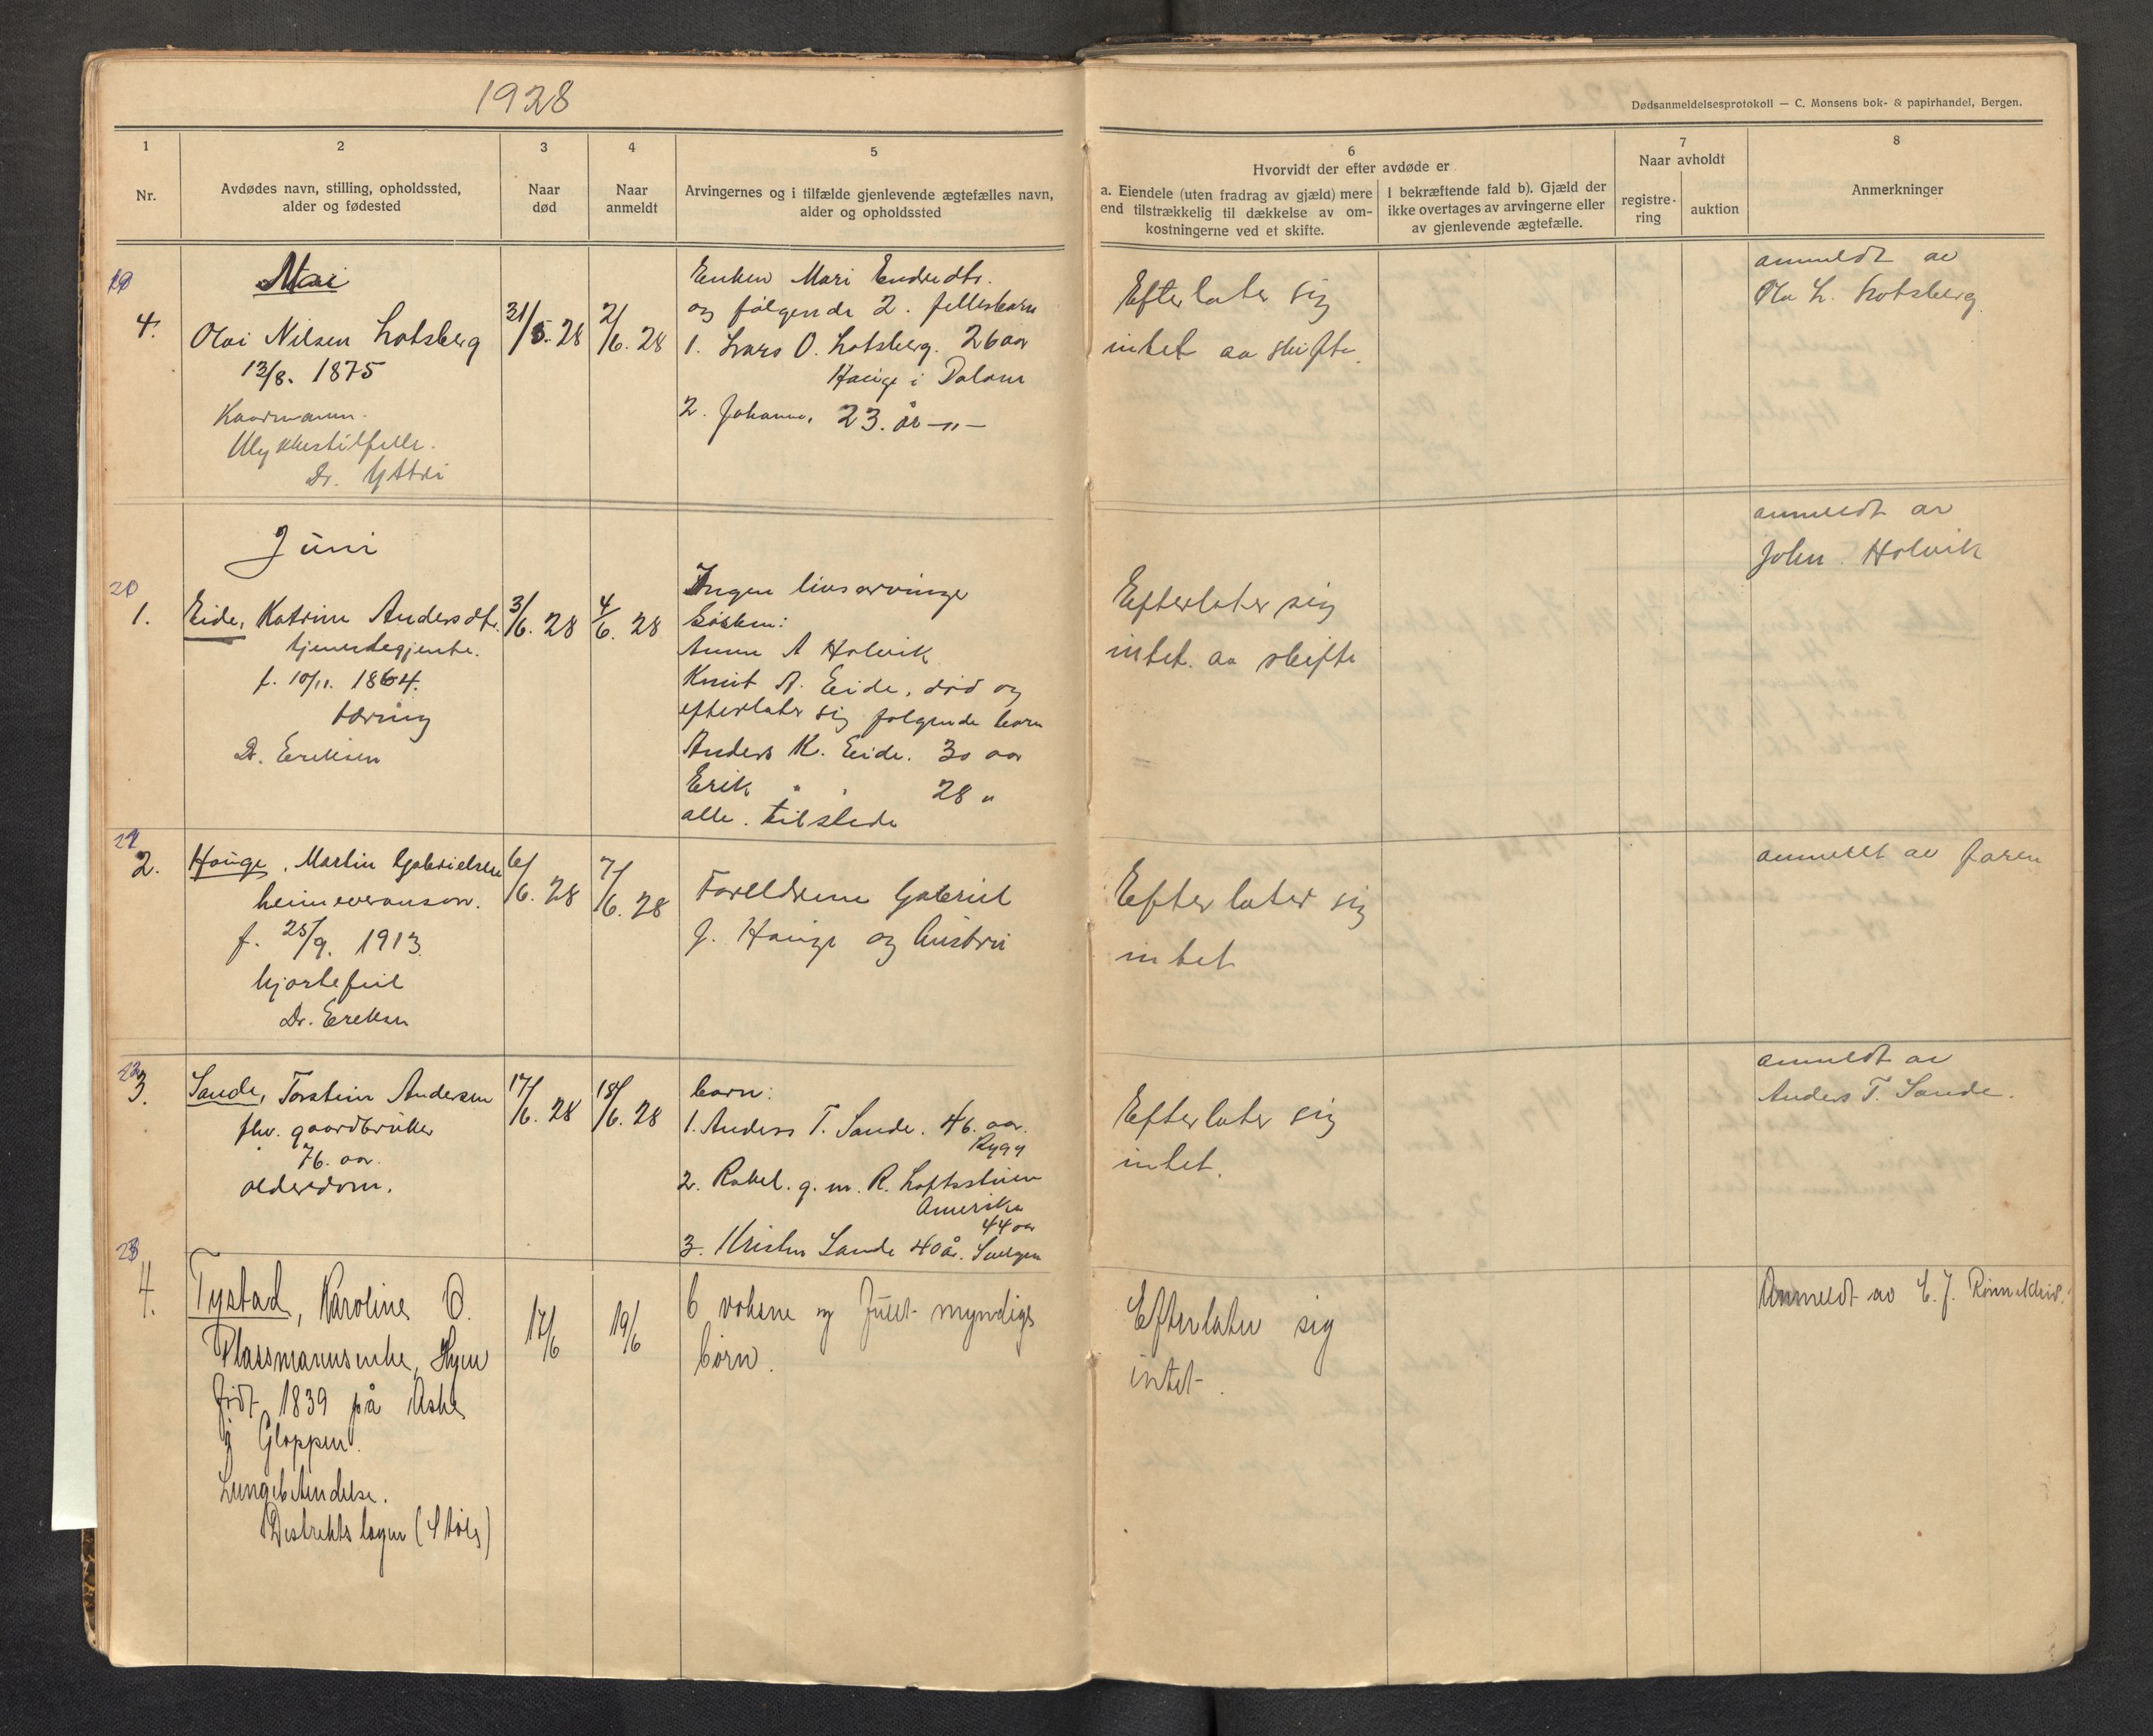 1928
Dødsanmeldelsesprotokoll — C. Monsens bok- & papirhandel, Bergen.
1
Nr.
2
Avdødes navn, stilling, opholdssted,
alder og fødested
3
Naar
død
4
Naar
anmeldt
5
Arvingernes og i tilfælde gjenlevende ægtefælles navn,
alder og opholdssted
6
Hvorvidt der efter avdøde er
a. Eiendele (uten fradrag av gjæld) mere
end tilstrækkelig til dækkelse av om-
kostningerne ved et skifte.
I bekræftende fald b). Gjæld der
ikke overtages av arvingerne eller
av gjenlevende ægtefælle.
7
Naar avholdt
registre-
ring
auktion
8
Anmerkninger
Mai
19
4.
Olai Nilsen Lotsberg
13/8. 1875
Kaarmann.
Ulykkestilfelle.
Dr. Yttri
31/5. 28
2/6. 28
Enken Mari Endredtr.
og følgende 2. fellesbarn
1. Lars O. Lotsberg. 26 aar
Hauge i Dalane
2. Johanne, 23. år —"—
Efterlater sig
intet aa skifte.
anmeldt av
Ola L. Lotsberg
Juni
20
1.
Eide, Katrine Andersdtr.
tjenestegjente.
f. 10/11. 1864.
tæring
Dr. Eriksen
3/6. 28
4/6. 28
Ingen livsarvinge
Søsken:
Anne A Holvik
Knut A. Eide, død og
efterlater sig følgende born
Anders K. Eide. 30 aar
Erik " " 28 "
alle. tilstede
Efterlater sig
intet. aa skifte
anmeldt av
John Holvik
21
2.
Hauge, Martin Gabrielsen
heimeveranson.
f. 25/9. 1913.
hjertefeil
Dr. Eriksen
6/6. 28
7/6. 28
Foreldrene Gabriel
J. Hauge og hustru
Efterlater sig
intet
anmeldt av faren
22
3.
Sande, Torstein Andersen
fhv. gaardbruker
76. aar.
alderdom.
17/6. 28
18/6. 28
born:
1. Anders T. Sande. 46. aar.
Rygg
2. Rakel. g. m. R. Loftssteien
Amerika
44 aar
3. Kristen Sande 40 år. Svelgen
Efterlater sig
intet.
anmeldt av
Anders T. Sande.
23
4.
Tystad, Karoline O.
Plassmannsenke, Hyen
født 1839 på Aske
i Gloppen.
Lungebetendelse.
Distriktslægen (Støls)
17/6
19/6
6 voksne og fullt myndige
born.
Efterlater sig
intet.
Anmeldt av E. J.